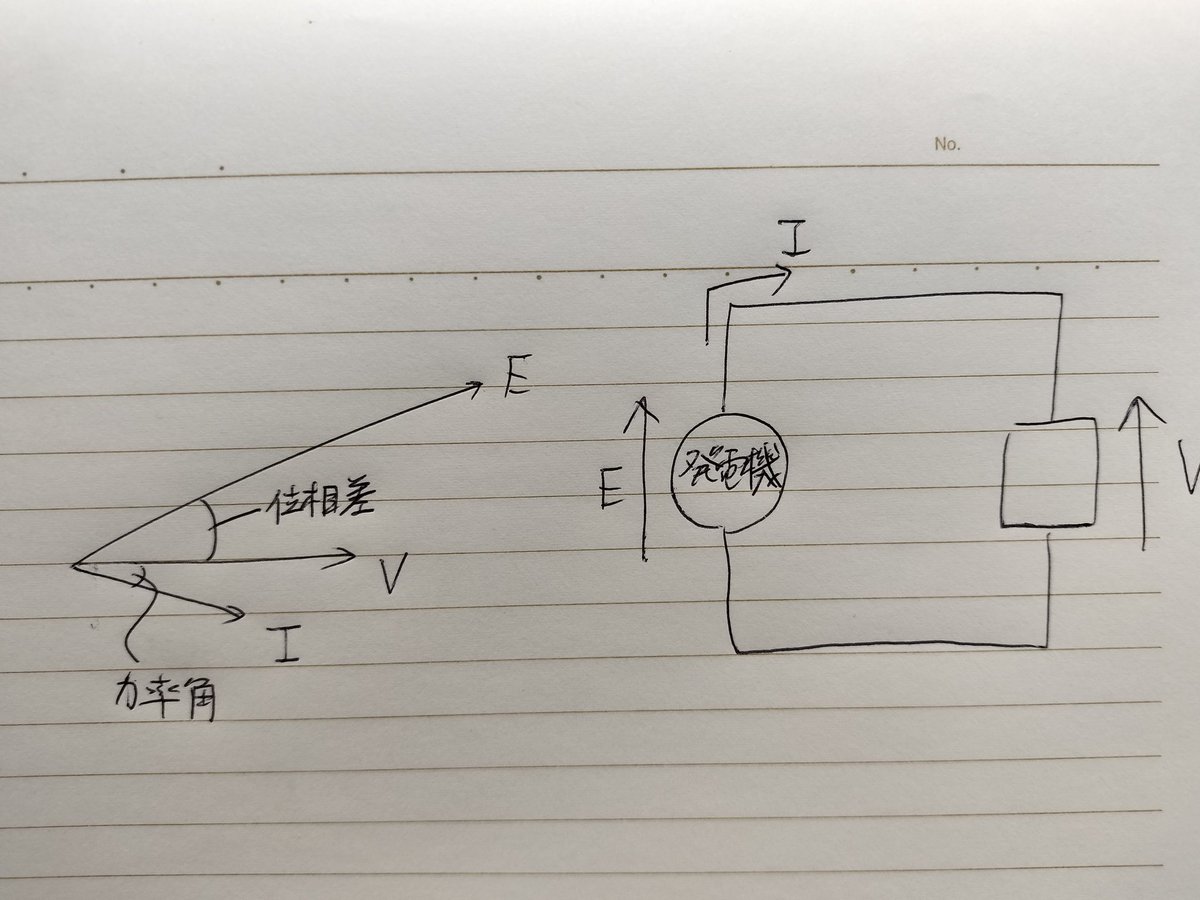 No.
I
E
位相差
V
I
力率角
E
発電機
V